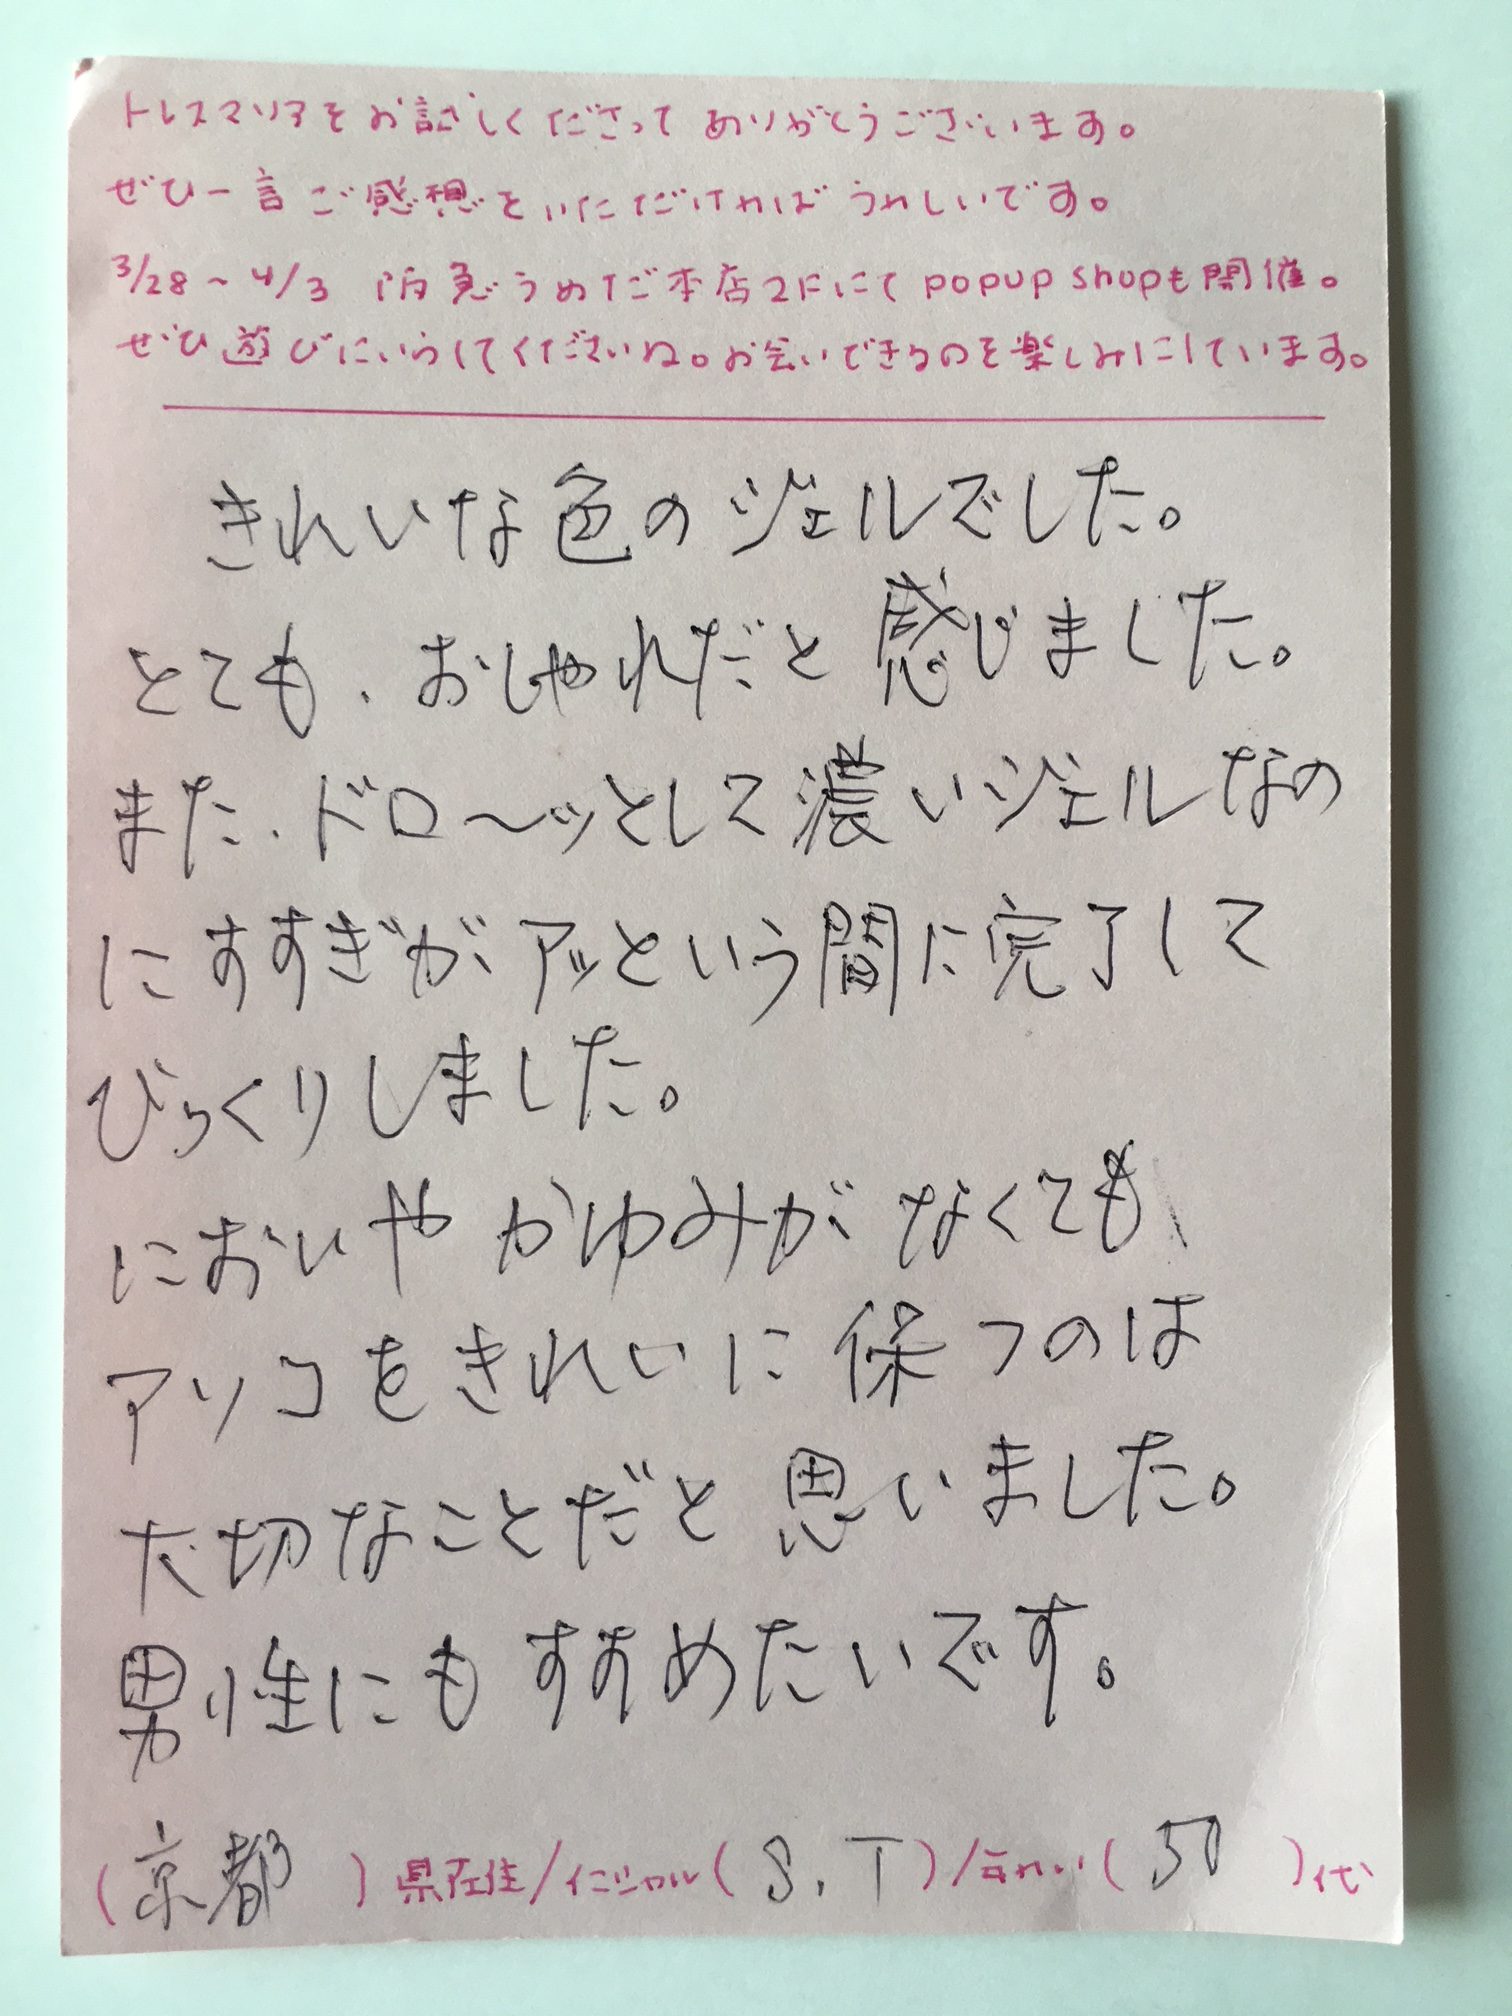 トレスマリアをお試しくださってありがとうございます。
ぜひ一言ご感想をいただければうれしいです。
3/28〜4/3 阪急うめだ本店2Fにてpopup shopも開催。
ぜひ遊びにいらしてくださいね。お会いできるのを楽しみにしています。
きれいな色のジェルでした。
とても、おしゃれだと感じました。
また、ドロ〜ッとして濃いジェルなの
にすすぎがアッという間に完了して
びっくりしました。
においやかゆみがなくても、
アソコをきれいに保つのは
大切なことだと思いました。
男性にもすすめたいです。
(京都)県在住/イニシャル(S.T)/年れい(50)代